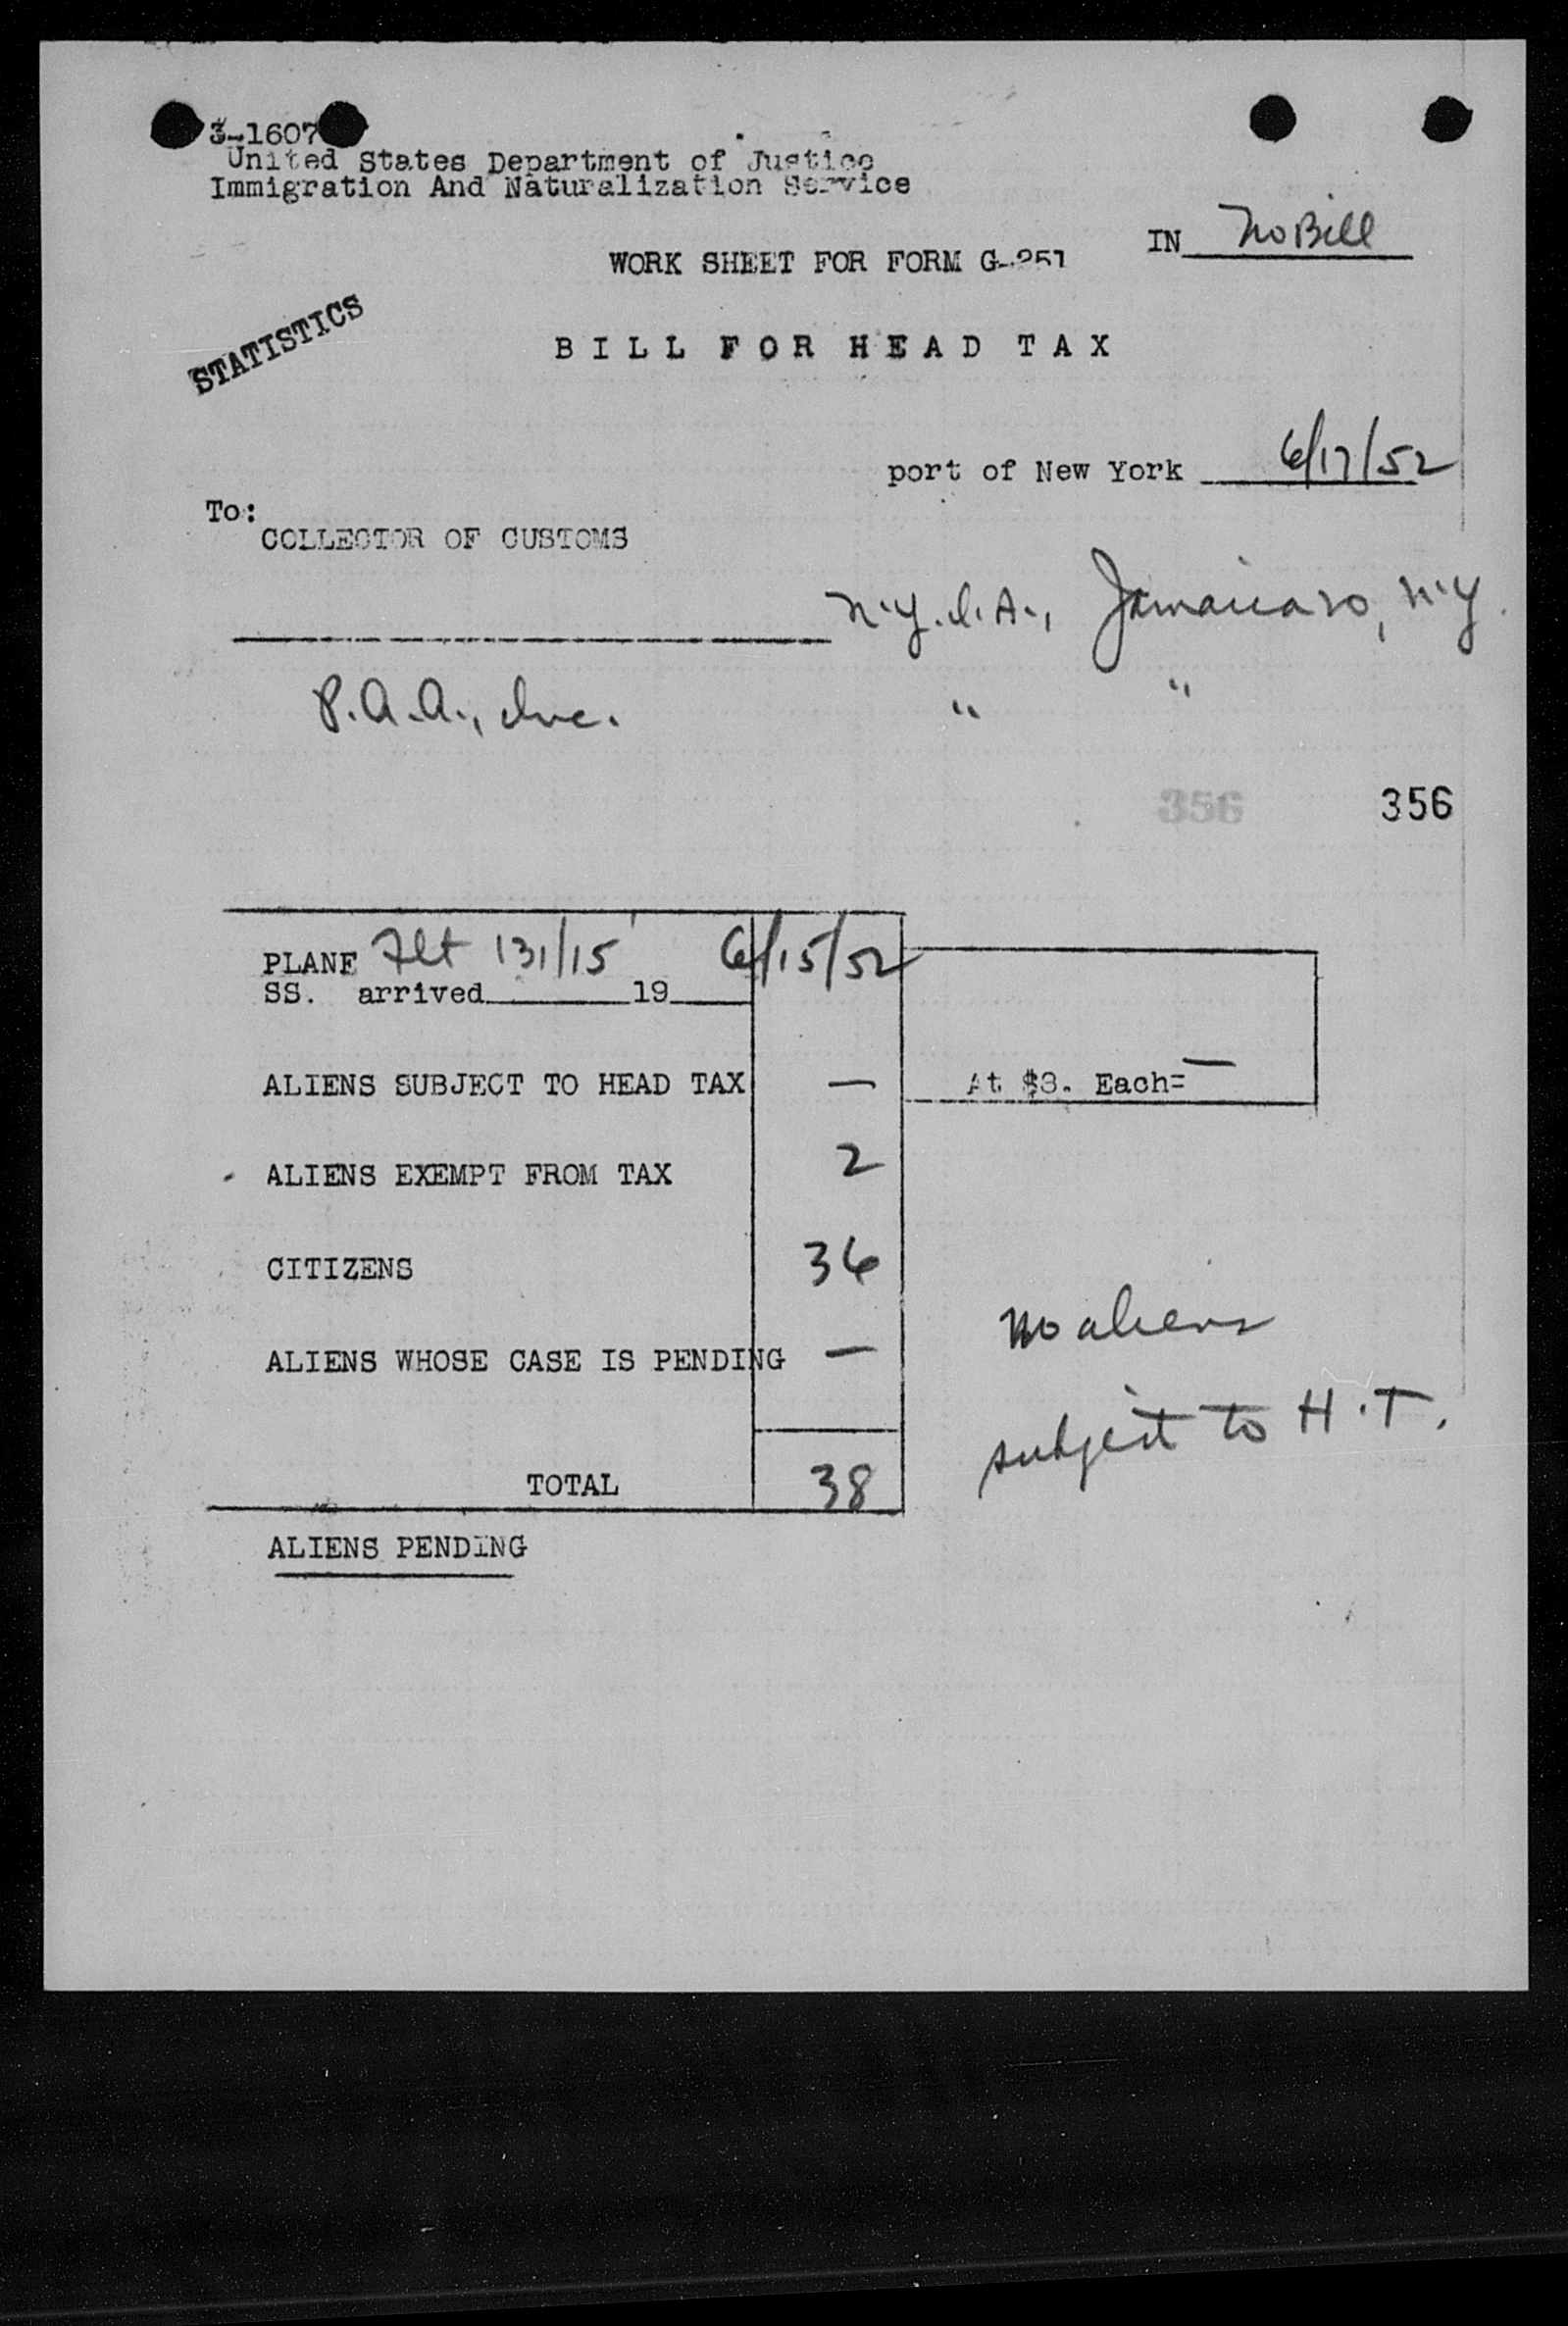 3-1607
United States Department of Justice
Immigration And Naturalization Service
IN No Bill
WORK SHEET FOR FORM G-251
STATISTICS
BILL FOR HEAD TAX
port of New York 6/17/52
To:
COLLECTOR OF CUSTOMS
N.Y.I.A., Jamaica 30, N.Y.
P.A.A., Inc. " "
356 356
PLANE Flt 131/15 6/15/52
SS. arrived 19
ALIENS SUBJECT TO HEAD TAX — At $8. Each= —
ALIENS EXEMPT FROM TAX 2
CITIZENS 36
No aliens
ALIENS WHOSE CASE IS PENDING —
subject to H.T.
TOTAL 38
ALIENS PENDING